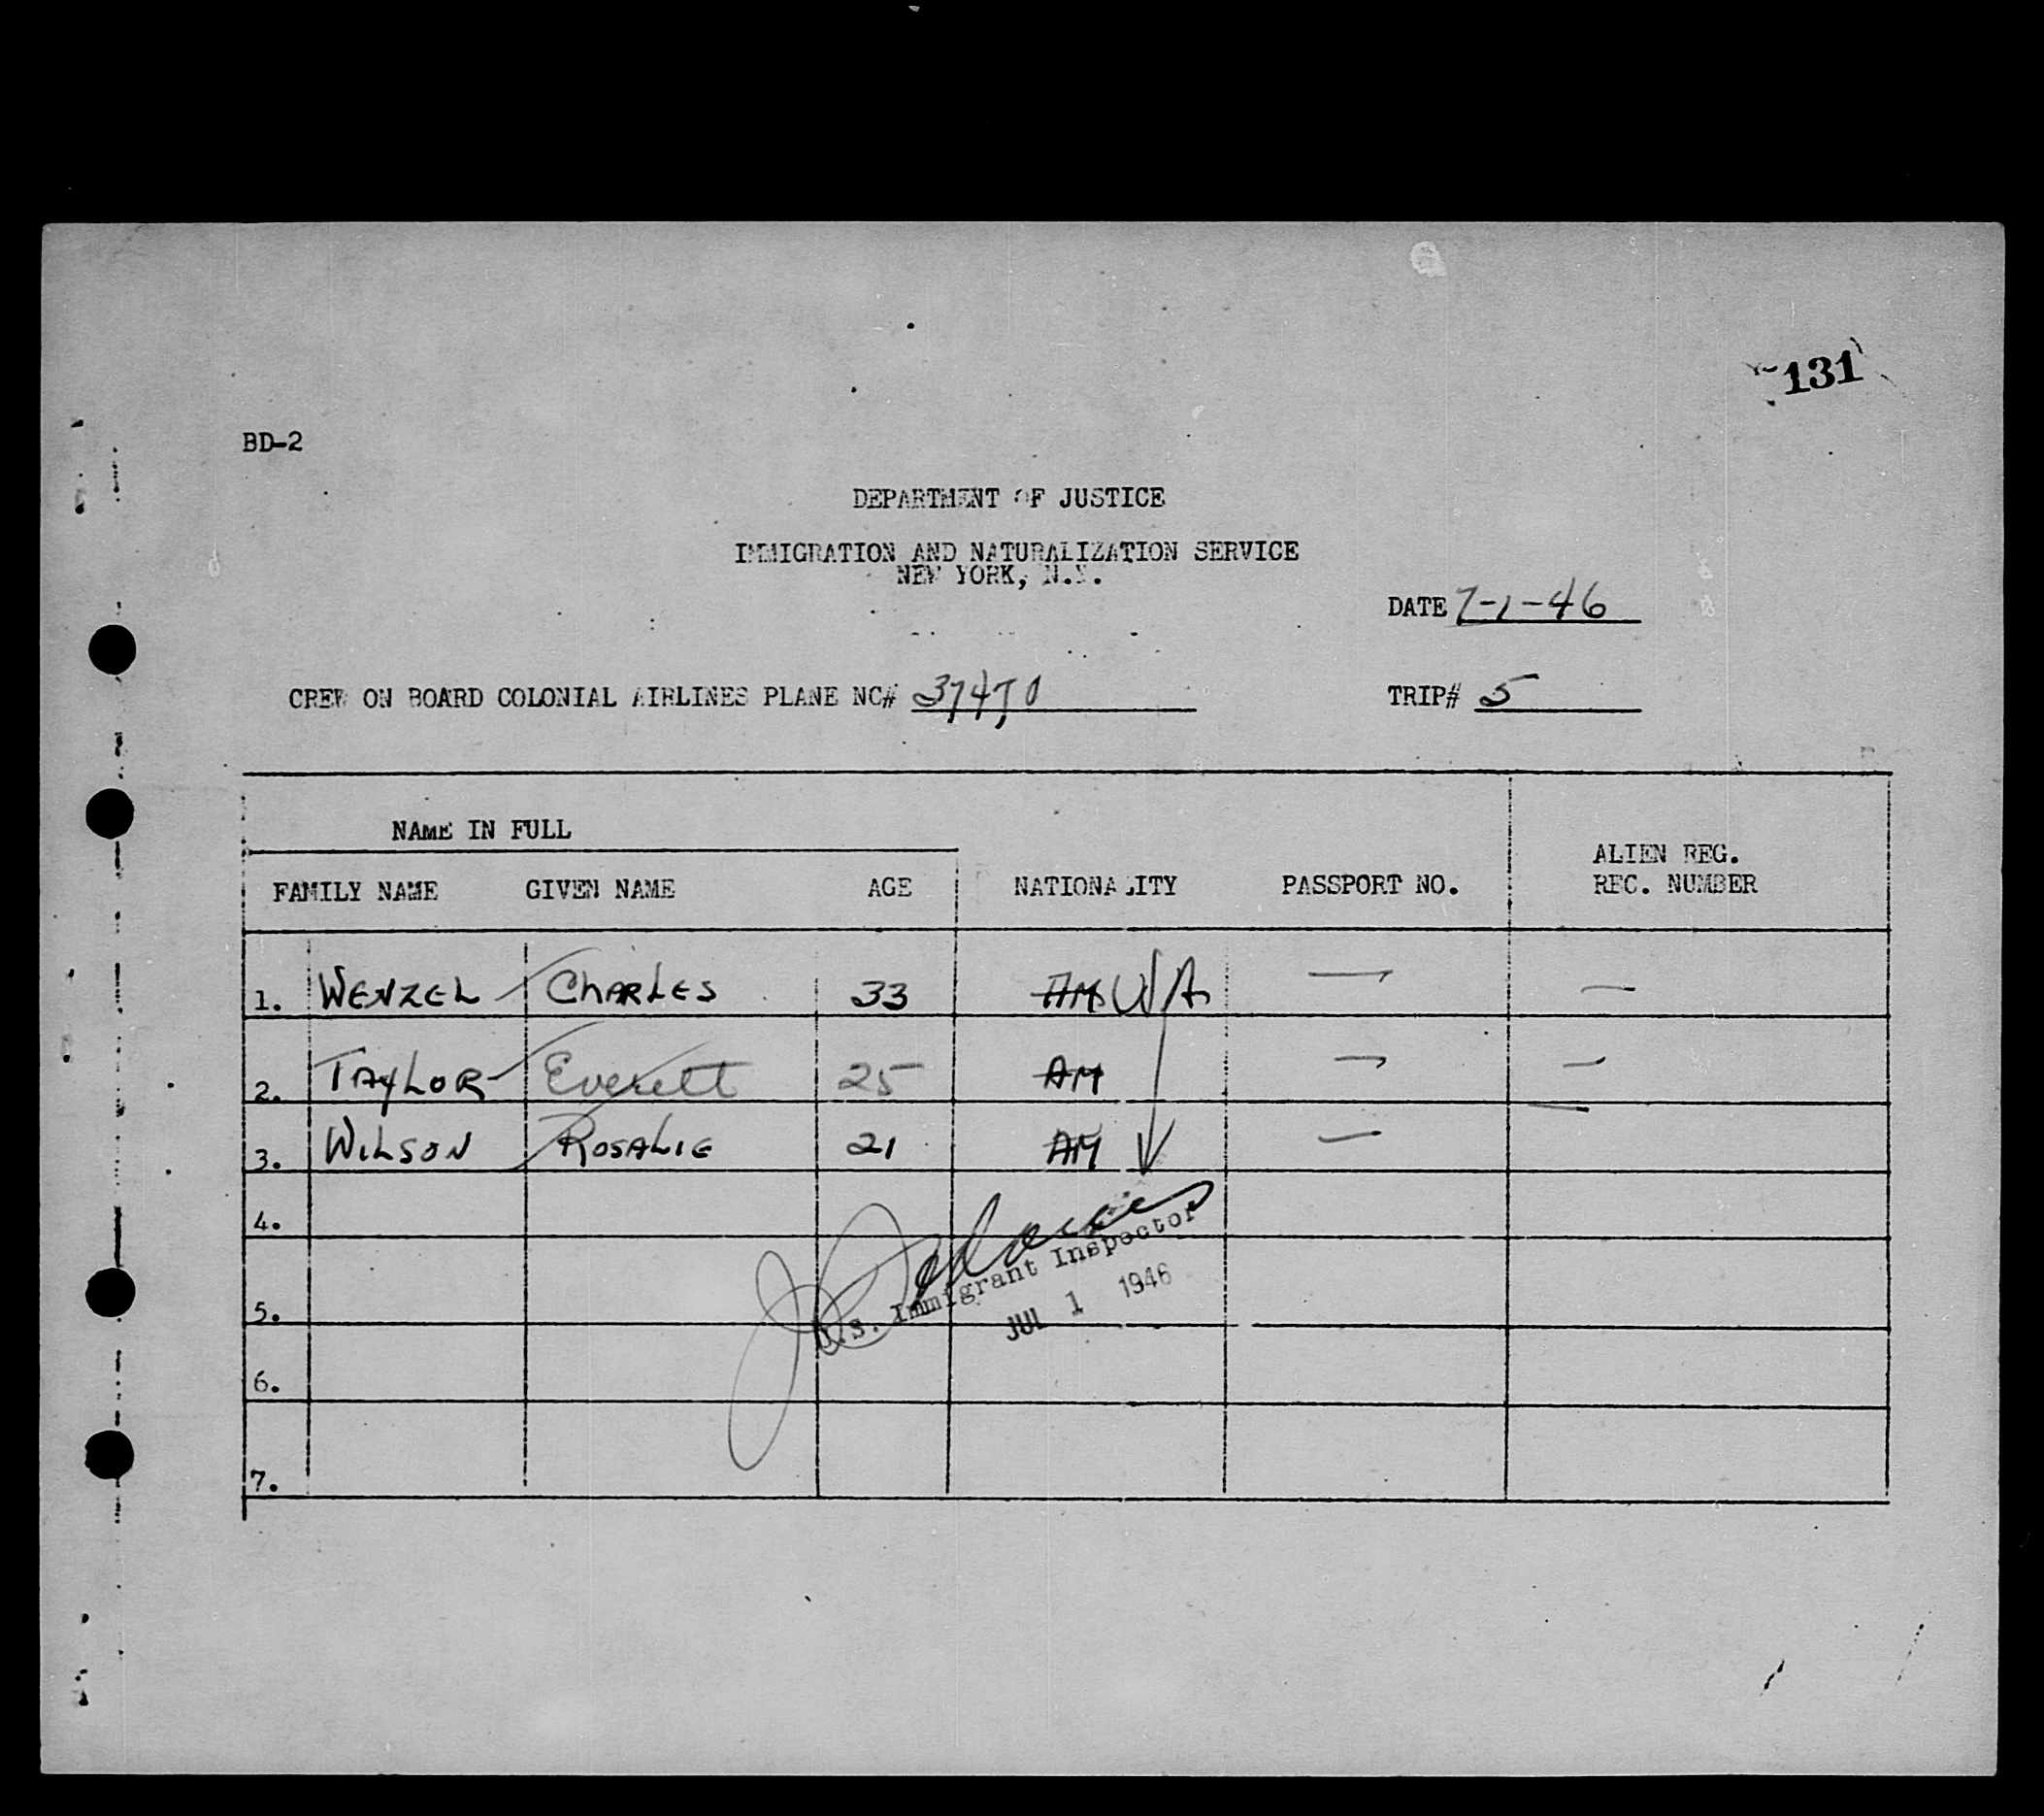 131
BD-2
DEPARTMENT OF JUSTICE
IMMIGRATION AND NATURALIZATION SERVICE
NEW YORK, N.Y.
DATE 7-1-46
CREW ON BOARD COLONIAL AIRLINES PLANE NC# 37470 TRIP# 5
NAME IN FULL
FAMILY NAME GIVEN NAME AGE NATIONALITY PASSPORT NO. ALIEN REG. REC. NUMBER
1. WENZEL CHARLES 33 AM — —
2. TAYLOR Everett 25 AM — —
3. WILSON ROSALIE 21 AM — —
4.
5.
6.
7.
U.S. Immigrant Inspector
JUL 1 1946